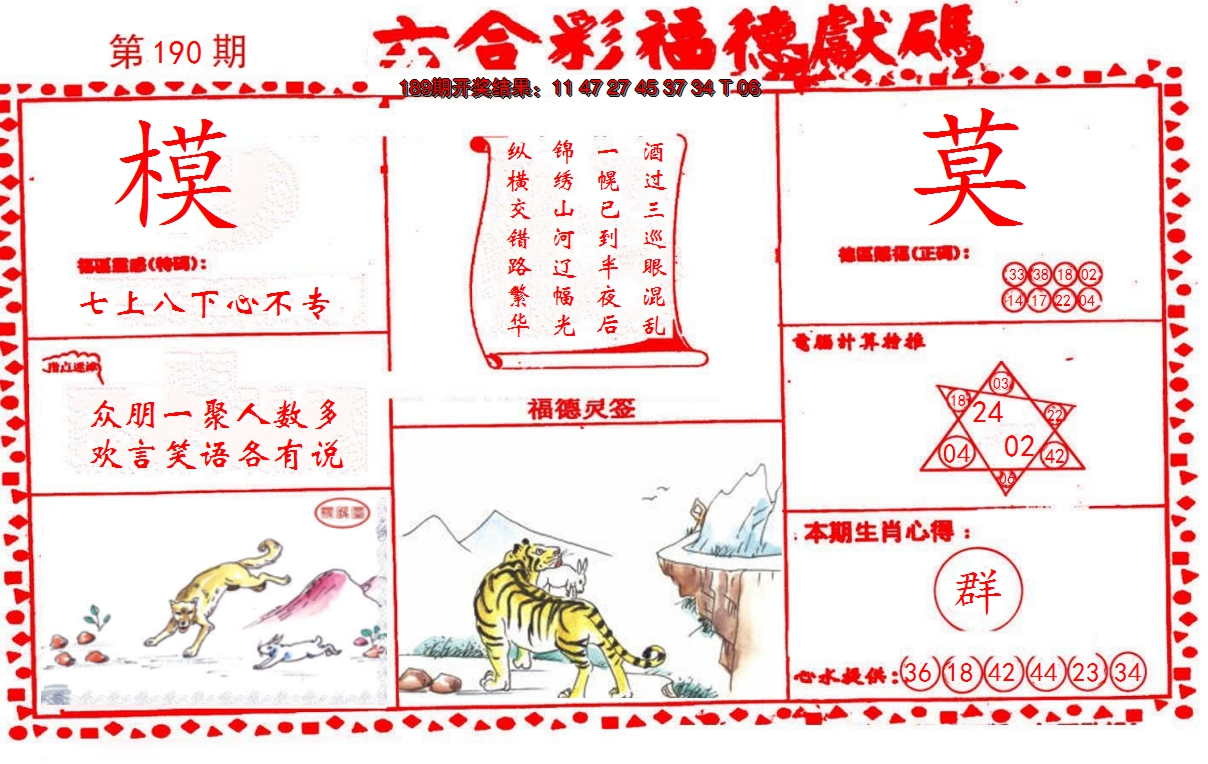 六合彩福德獻碼
第190期
189期开奖结果：11 47 27 45 37 34 T 06
模
福區靈感(特碼)：
七上八下心不专
指点迷津
众朋一聚人数多
欢言笑语各有说
酒过三巡眼混乱
一幌已到半夜后
锦绣山河辽幅光
纵横交错路繁华
福德灵签
莫
德區賜福(正碼)：
33 38 18 02
14 17 22 04
電腦计算抢推
03
18 24 22
04 02 42
06
本期生肖心得：
群
心水提供：36 18 42 44 23 34